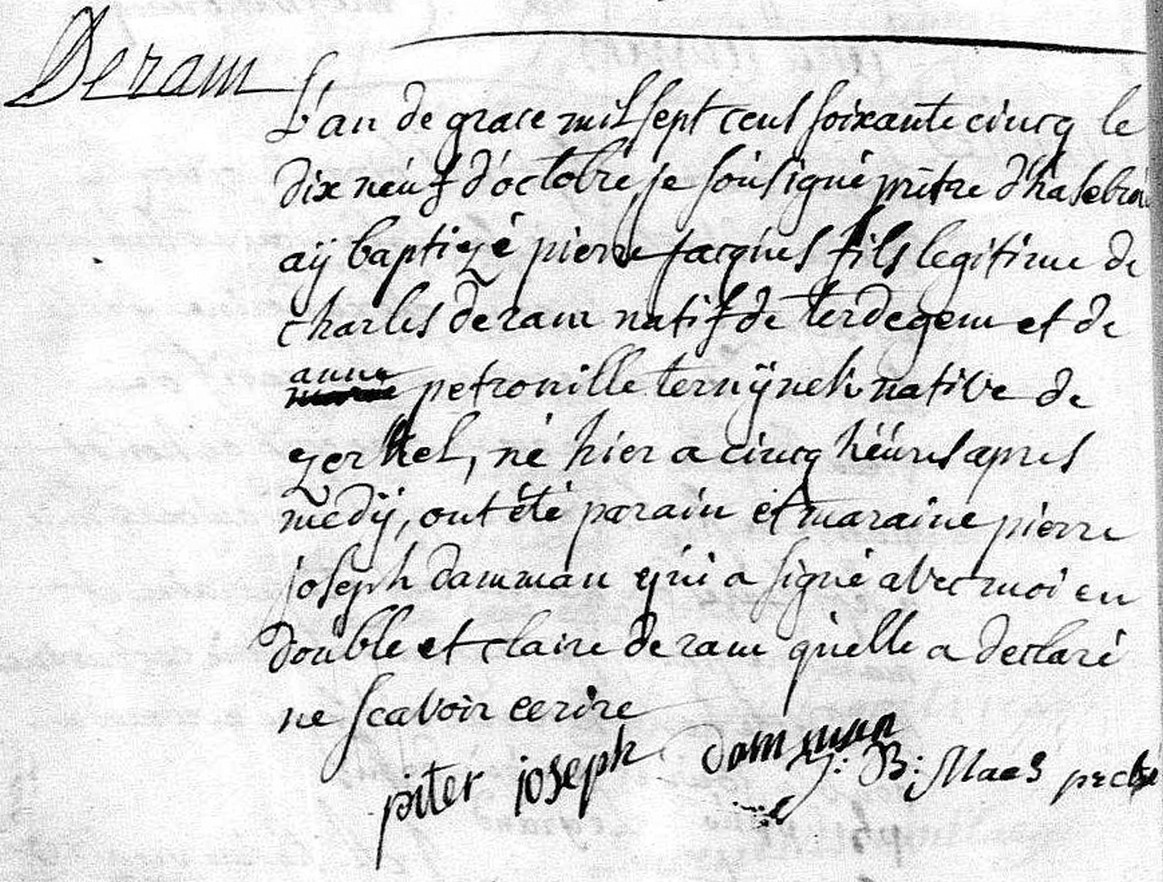 Deram
L'an de grace mil sept cent soixante cincq le
dix neuf d'octobre, je sousigné prêtre d'hasebrou
aÿ baptizé pierre jacques fils legitime de
charles deram natif de terdegem et de
anne petronille ternÿnck native de
zerkel, né hier a cincq héures apres
medÿ, ont été parain et maraine pierre
joseph damman qui a signé avec moi en
double et claire deram qu'elle a declaré
ne scavoir ecrire
piter joseph damman
J: B: Maes